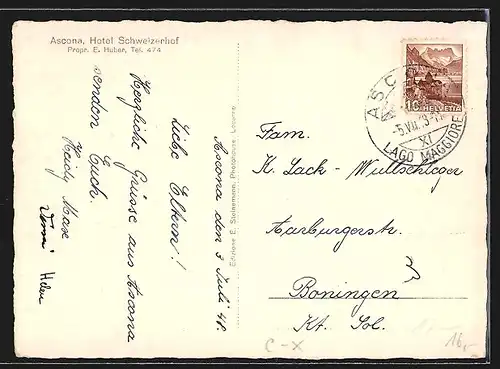 Ascona, Hotel Schweizerhof
Propr. E. Huber, Tel. 474
Ascona den 3 Juli 48.
Liebe Eltern!
Herzliche Grüsse aus Ascona
senden Euch.
Heidy Max
Edizione E. Steinemann, Photohouse, Locarno
10 HELVETIA
ASC
-5.VII.
XI
LAGO MAGGIORE
Fam.
K. Lack - Wullschleger
Aarburgerstr.
Boningen
Kt. Sol.
C-X
16,-